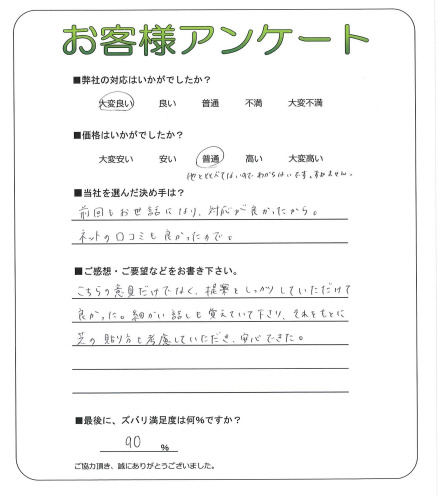 お客様アンケート
■弊社の対応はいかがでしたか？
大変良い 良い 普通 不満 大変不満
■価格はいかがでしたか？
大変安い 安い 普通 高い 大変高い
他とくらべてないのでわからないです。すみません。
■当社を選んだ決め手は？
前回もお世話になり、対応が良かったから。
ネットの口コミも良かったので。
■ご感想・ご要望などをお書き下さい。
こちらの意見だけでなく、提案もしっかりしていただけて
良かった。細かい話しも覚えていて下さり、それをもとに
芝の貼り方も考慮していただき、安心できた。
■最後に、ズバリ満足度は何％ですか？
90 ％
ご協力頂き、誠にありがとうございました。